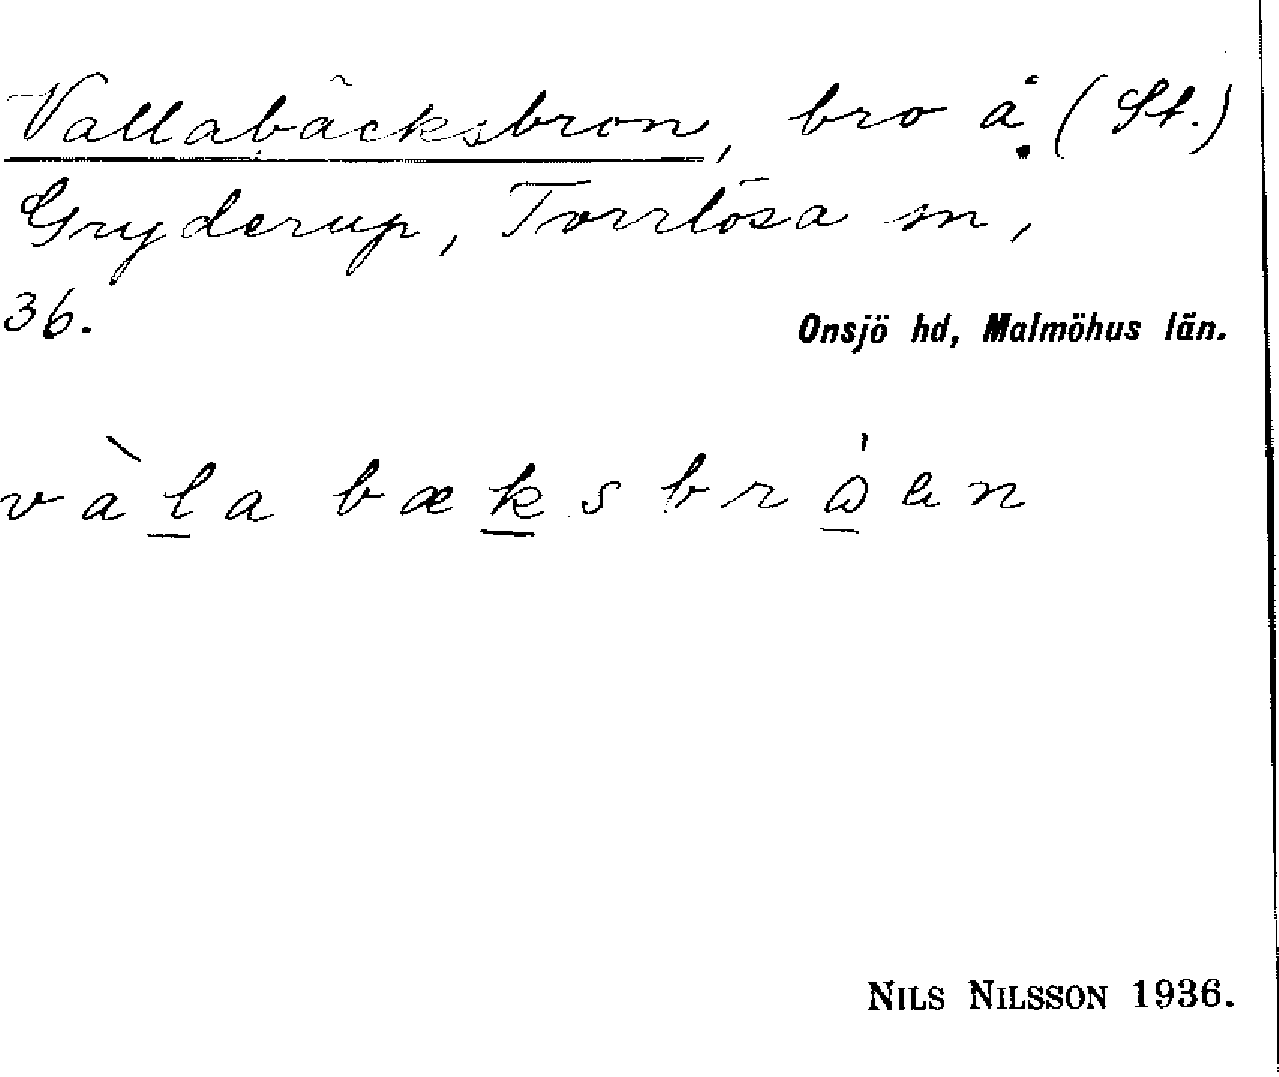 Vallabäcksbron, bro å (St.)
Gryderup, Torrlösa sn,
36.
Onsjö hd, Malmöhus län.
vàla bæksbråen
NILS NILSSON 1936.